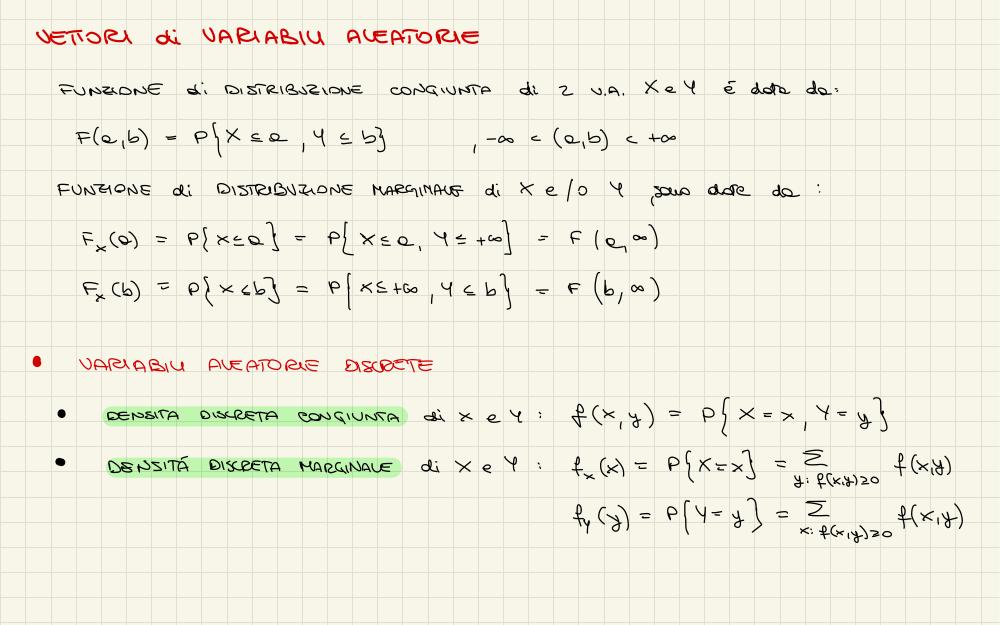 VETTORI di VARIABILI ALEATORIE
FUNZIONE di DISTRIBUZIONE CONGIUNTA di 2 V.A. X e Y é data da:
F(a,b) = P{X ≤ a , Y ≤ b} , -∞ < (a,b) < +∞
FUNZIONE di DISTRIBUZIONE MARGINALE di X e/o Y sono date da :
F_x(a) = P{X ≤ a} = P{X ≤ a, Y ≤ +∞} = F(a,∞)
F_x(b) = P{X ≤ b} = P{X ≤ +∞, Y ≤ b} = F(b,∞)
• VARIABILI ALEATORIE DISCRETE
• DENSITA DISCRETA CONGIUNTA di X e Y : f(x,y) = P{X = x, Y = y}
• DENSITÁ DISCRETA MARGINALE di X e Y : f_x(x) = P{X = x} = Σ_{y: f(x,y)≥0} f(x,y)
f_y(y) = P{Y = y} = Σ_{x: f(x,y)≥0} f(x,y)